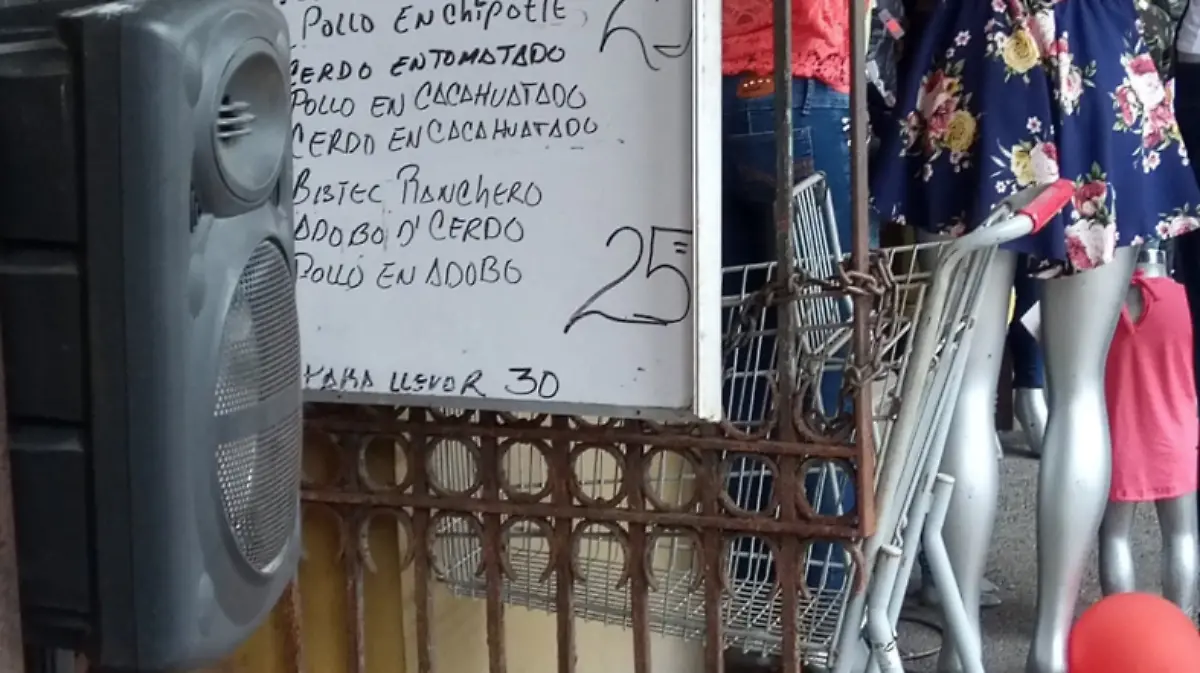 POLLO EN CHIPOTLE 25
CERDO ENTOMATADO
POLLO EN CACAHUATADO
CERDO EN CACAHUATADO
BISTEC RANCHERO
ADOBO D' CERDO
POLLO EN ADOBO 25
PARA LLEVAR 30